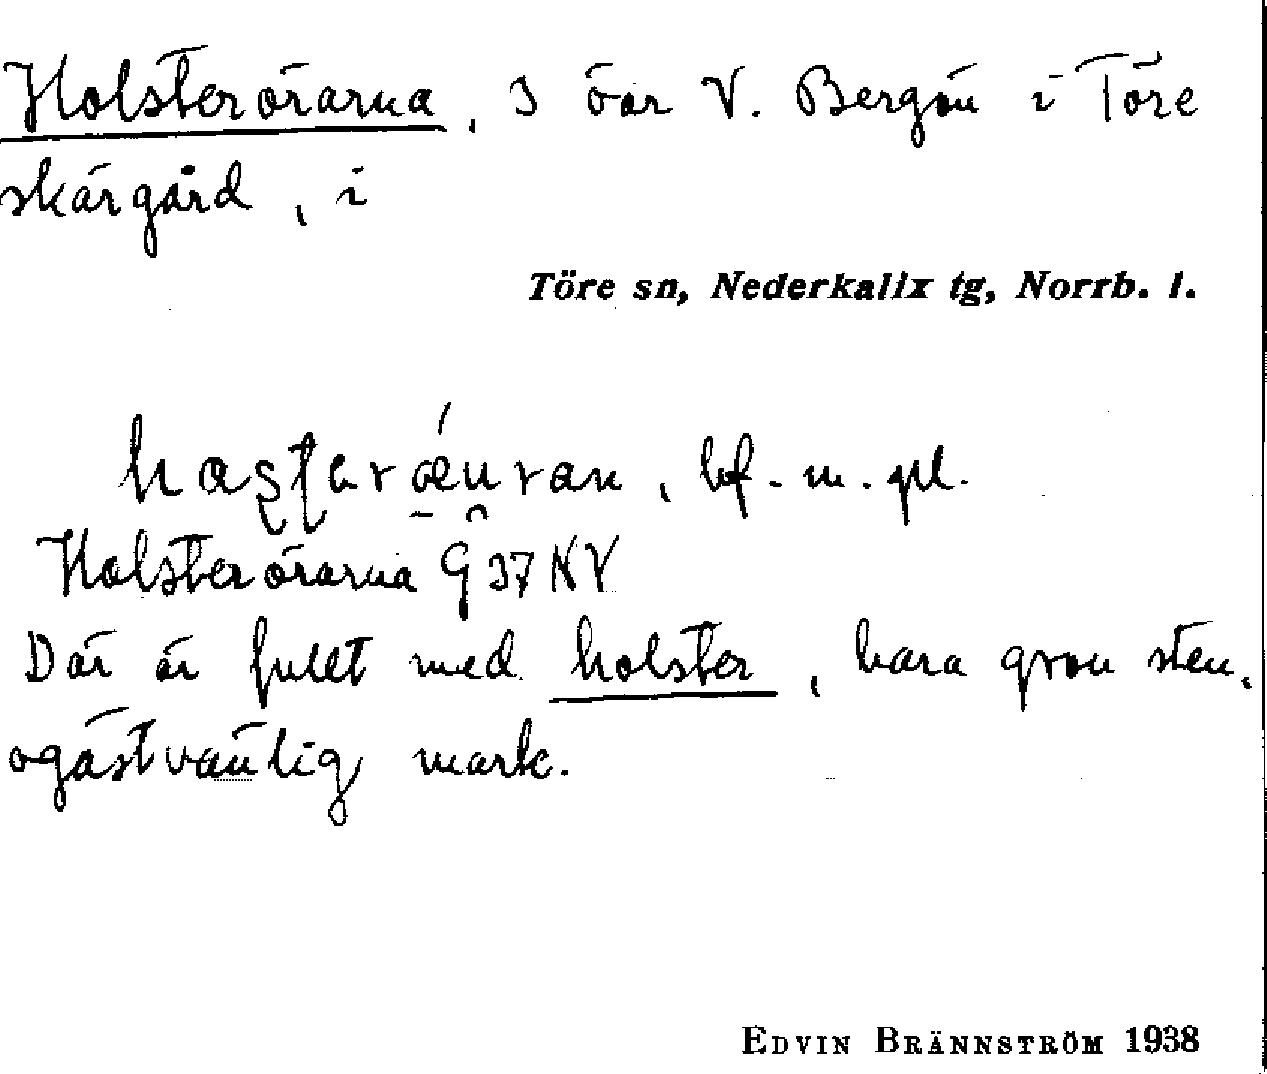 Holsterörarna, 3 öar V. Bergön i Töre
skärgård, i
Töre sn, Nederkalix tg, Norrb. l.
bf. m. pl.
Holsterörarna G 37 NV
Där är fullt med holster, bara grov sten,
ogästvänlig mark.
EDVIN BRÄNNSTRÖM 1938